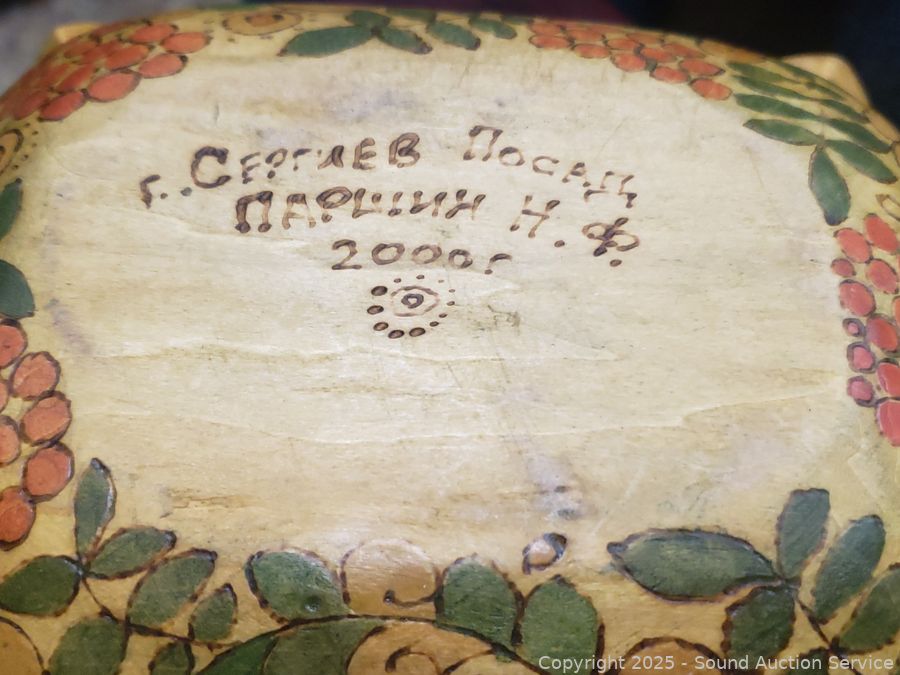 г. Сергиев Посад
Паршин Н.Ф.
2000г
Copyright 2025 - Sound Auction Service